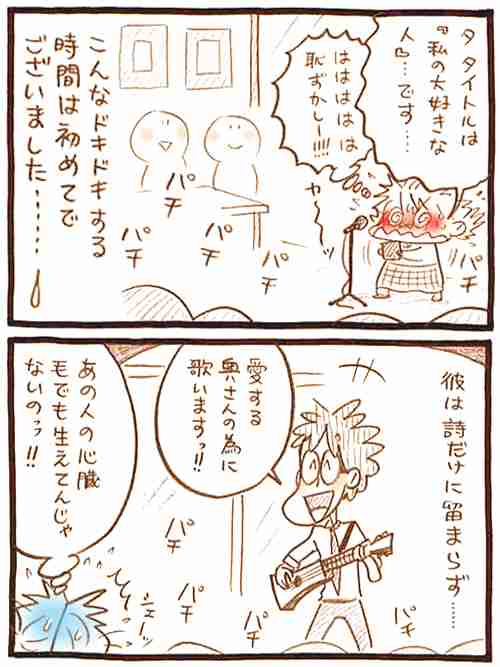 タタイトルは
『私の大好きな
人』…です……
はははははは
恥ずかしー!!!!
ヤ〜〜ッ
パチ
パチ
パチ
パチ
パチ
こんなドキドキする
時間は初めてで
ございました………。
彼は詩だけに留まらず……
愛する
奥さんの為に
歌いますっ!!
あの人の心臓
毛でも生えてんじゃ
ないのッ!!
シェーッ
パチ
パチ
パチ
パチ